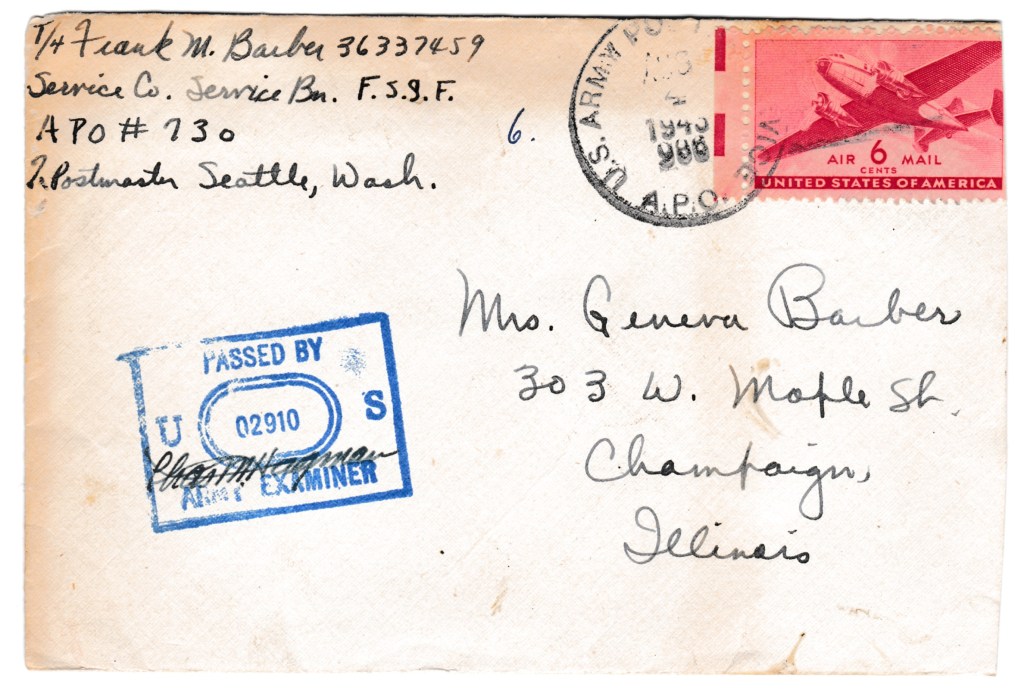 T/4 Frank M. Barber 36337459
Service Co. Service Bn. F.S.S.F.
APO # 730
Postmaster Seattle, Wash.
6.
U.S. ARMY
AUG
4
1943
A.P.O.
AIR 6 MAIL
CENTS
UNITED STATES OF AMERICA
Mrs. Geneva Barber
303 W. Maple St.
Champaign,
Illinois
PASSED BY
U 02910 S
ARMY EXAMINER